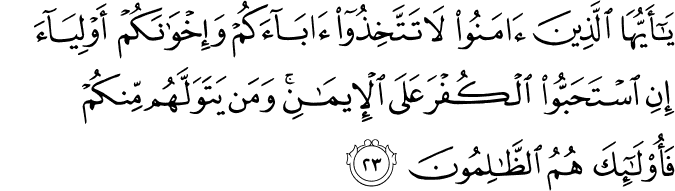 يَـٰٓأَيُّهَا ٱلَّذِينَ ءَامَنُوا۟ لَا تَتَّخِذُوٓا۟ ءَابَآءَكُمْ وَإِخْوَٰنَكُمْ أَوْلِيَآءَ
إِنِ ٱسْتَحَبُّوا۟ ٱلْكُفْرَ عَلَى ٱلْإِيمَـٰنِ ۚ وَمَن يَتَوَلَّهُم مِّنكُمْ
فَأُو۟لَـٰٓئِكَ هُمُ ٱلظَّـٰلِمُونَ ٢٣